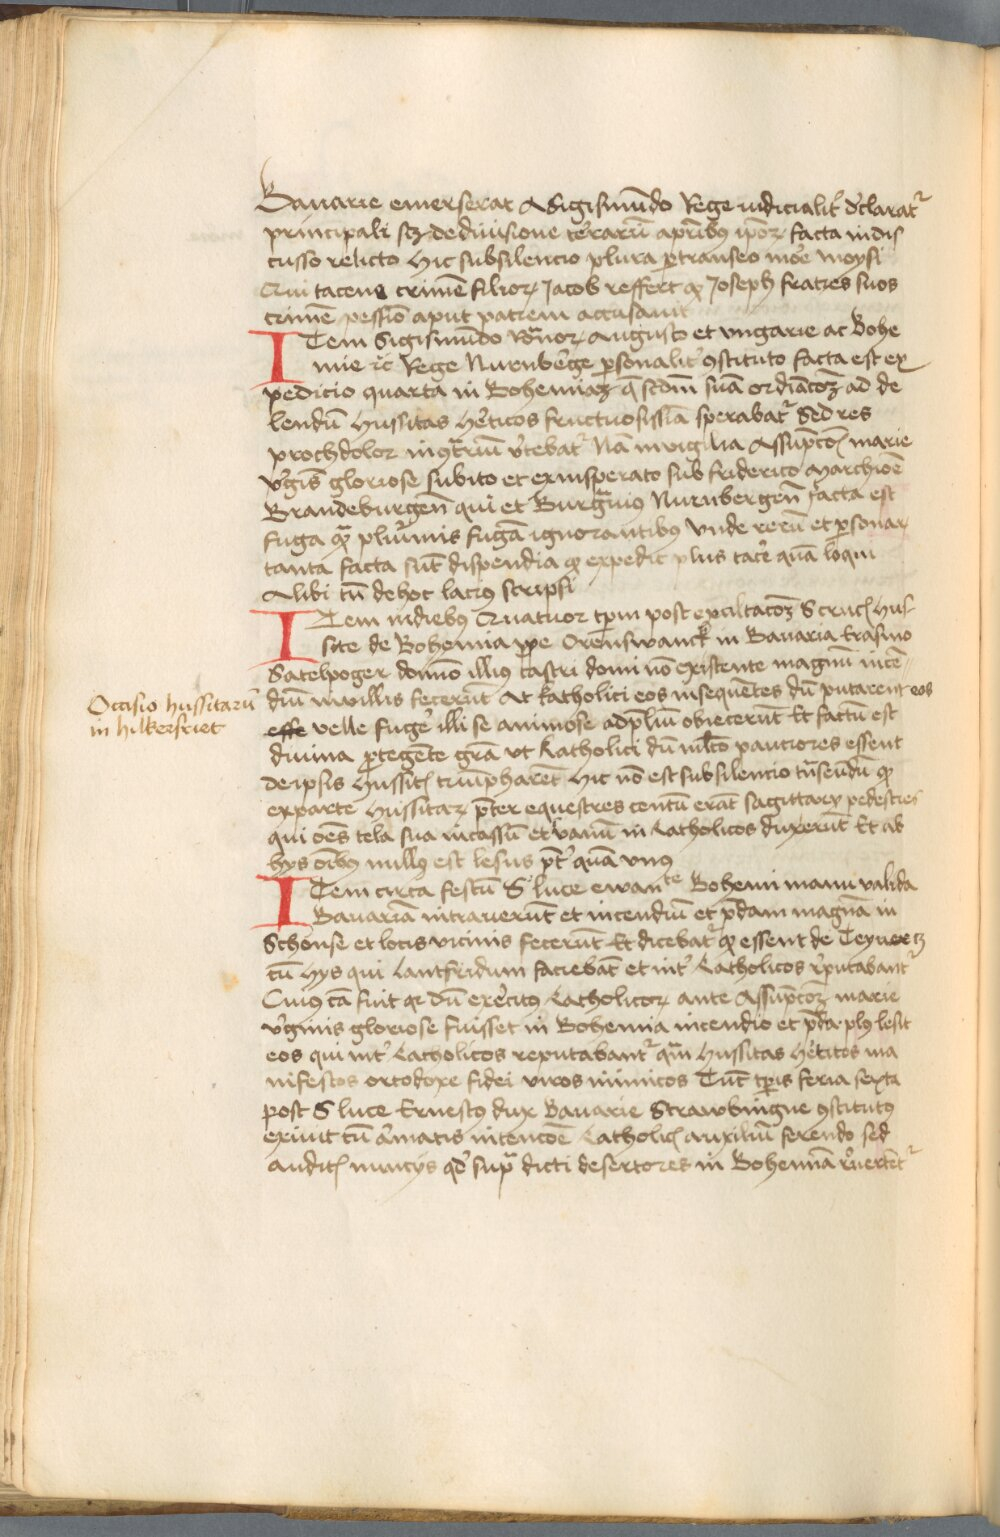 Bauarie emerserat A Sigismūdo Rege iudicialit᷑ dc̄larat᷑
principali scꝫ de diuisione tērarū a pr̄ibꝰ ipōꝝ facta indis
cusso relicto Hic sub silencio plura ꝑtranseo mōe moysi
Qui tacens crimē filioꝝ Jacob reffert ꝙ Joseph fratres suos
crimīe pessīo aput patrem accusauit
ITem Sigismūdo Rōnoꝝ Augusto et vngarie ac Bohe
mie ⁊c̄ Rege Nurenbērge ꝑsonalit᷑ ꝯstituto facta est ex
pedicio quarta in Bohemiaꝫ q̄ scd̄m suā ordīacōꝫ ad de
lendū Hussitas hēticos fructuosissīa sperabat᷑ Sed res
prochdolor in ꝯtrium v̄tebat᷑ Nā in vigilia Assūpcōīs marie
v̄gīs gloriose subito et ex insperato sub friderico Marchiōe
Brandeburgen̄ qui et Burgᵃuius Nurenbergen̄ facta est
fuga qᵃꝫ plurimis fugā ignorantibꝰ Vnde rerū et ꝑsonaꝝ
tanta facta sūt dispendia ꝙ expedit plus tacē quā loqui
Alibi tn̄ de hoc lacius scripsi
ITem in diebꝰ Quatuor tp̄m post exaltacōꝫ S crucis Hus-
site de Bohemia ꝓpe Orenswanck in Bauaria Erasmo
Satelpoger domīo illiꝰ castri domi nō existente magnū incē-
diū in villis fecerūt At katholici eos insequētes dū putarent eos
esse velle fugē illi se animose ad p̄liū obiecerūt Et factū est
diuina ꝓtegēte grā vt Katholici dū mlto pauciores essent
de ipsis Hussitis triūpharēt Hic nō est sub silencio tn̄seūdū ꝙ
ex parte Hussitaꝝ p̄ter equestres centū erāt sagittarij pedestres
qui oēs tela sua in cassū et vanū in Catholicos duxerūt Et ab
hys oībꝰ nullꝰ est lesus p̄t᷑ quā vnꝰ
Occisio hussitarū
in hilkersriet
ITem circa festū S luce ewanᵗᵉ Bohemi manu valida
Bauariā intrauerūt et incendiū et p̄dam magnā in
Schonse et locis vicinis fecerūt Et dicebat᷑ ꝙ essent de Teynertz
cū hys qui Lantfridum faciebāt et int᷑ Catholicos r̄putabant᷑
Cuiꝰ cā fuit qꝛ dū exērcitꝰ Catholicoꝝ ante Assūpcōꝫ marie
v̄ginis gloriose fuisset in Bohemia incendio et p̄da plꝰ lesit
eos qui int᷑ Catholicos reputabant᷑ qᵃm Hussitas hēticos ma
nifestos ortodoxe fidei viros inimicos Tūc tp̄is feria sexta
post S luce Ernestꝰ dux Bauarie Strawbingne ꝯstitutꝰ
exiuit cū armatis intencōe Catholicis auxiliū ferendo sed
auditis nunccijs qd̄ supᵃ dicti desertores in Bohemiā r̄uertēt᷑